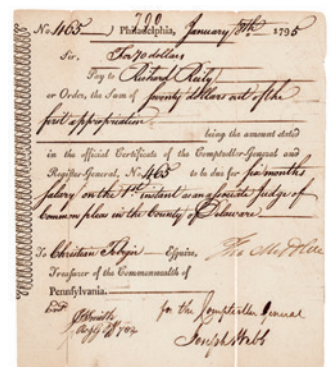 790
No. 465 Philadelphia, January 8th 1795
Sir. For 70 dollars
Pay to Richard Reily
or Order, the Sum of Seventy dollars out of the
first appropriation
being the amount stated
in the official Certificate of the Comptroller-General and
Register-General, No. 465 to be due for six months
salary on the 1st instant as an associate Judge of
Common pleas in the County of Delaware
To Christian Febiger Esquire,
Treasurer of the Commonwealth of
Pennsylvania.
for the Comptroller General
Joseph Webb